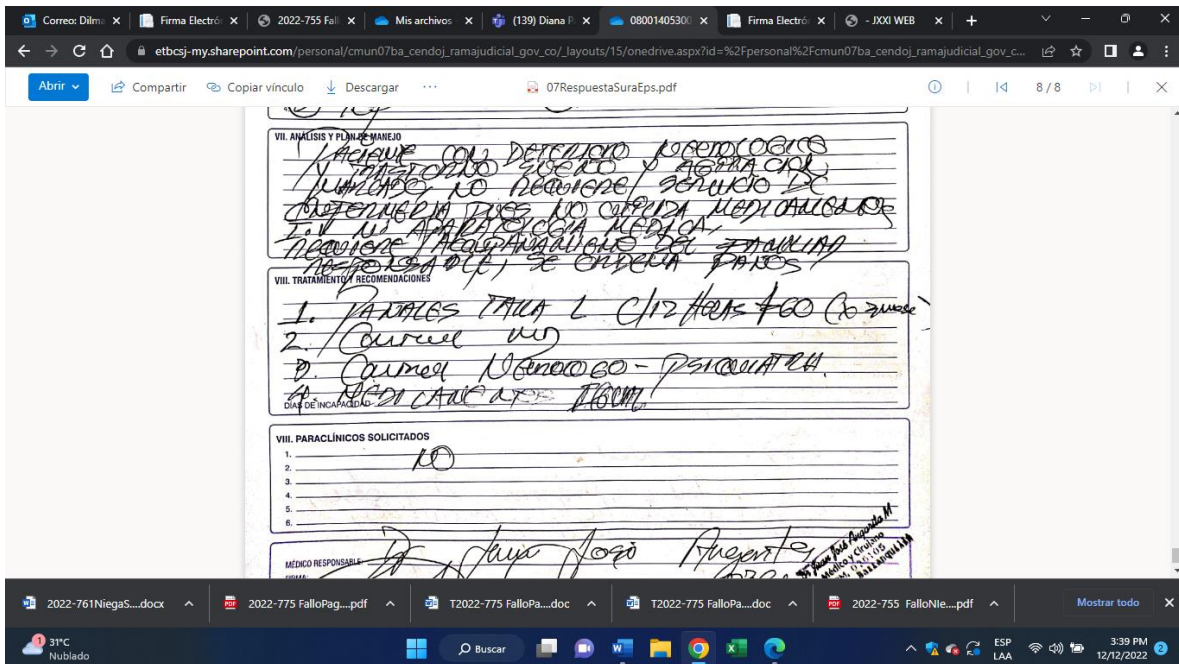 Correo: Dilma
Firma Electró
2022-755 Fall
Mis archivos
(139) Diana P
08001405300
Firma Electró
- JXXI WEB
etbcsj-my.sharepoint.com/personal/cmun07ba_cendoj_ramajudicial_gov_co/_layouts/15/onedrive.aspx?id=%2Fpersonal%2Fcmun07ba_cendoj_ramajudicial_gov_c...
Abrir
Compartir
Copiar vínculo
Descargar
...
07RespuestaSuraEps.pdf
8 / 8
VII. ANÁLISIS Y PLAN DE MANEJO
PACIENTE CON DETERIORO NEUROLOGICO
Y TRASTORNO SUEÑO Y AGITACION
MARCADO, NO REQUIERE SERVICIO DE
ENFERMERIA PUES NO MEDICAMENTOS
I.V NI APARATOLOGIA MEDICA,
REQUIERE ACOMPAÑAMIENTO DEL FAMILIAR
RESPONSABLE, SE ORDENA PAÑALES
VIII. TRATAMIENTO Y RECOMENDACIONES
1. PAÑALES TALLA L C/12 HORAS #60
2.
3. - PSIQUIATRIA.
4. MEDICAMENTOS
DÍAS DE INCAPACIDAD
VIII. PARACLÍNICOS SOLICITADOS
1. NO
2.
3.
4.
5.
6.
MÉDICO RESPONSABLE:
Médico y Cirujano
BARRANQUILLA
2022-761NiegaS....docx
2022-775 FalloPag....pdf
T2022-775 FalloPa....doc
T2022-775 FalloPa....doc
2022-755 FalloNIe....pdf
Mostrar todo
1
31°C
Nublado
Buscar
ESP
LAA
3:39 PM
12/12/2022
2